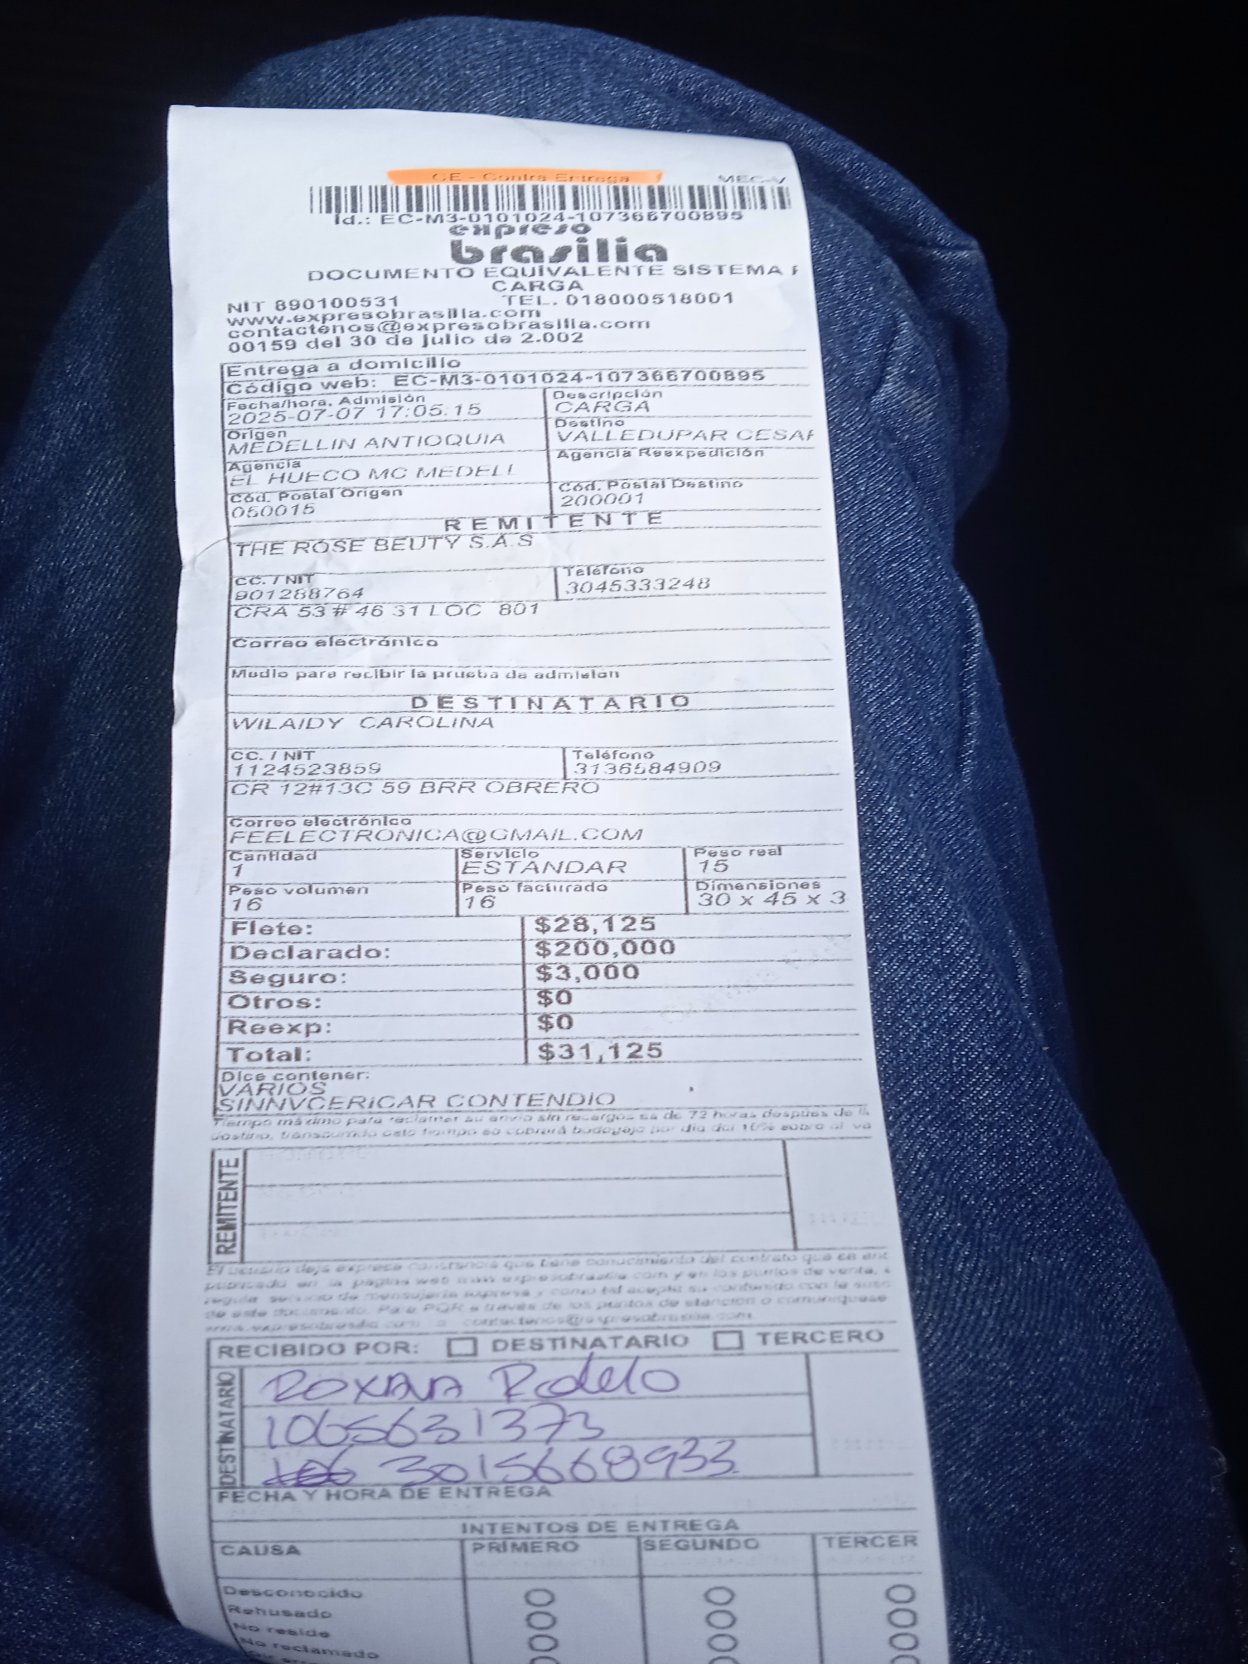 CE - Contra Entrega MEC-V
Id.: EC-M3-0101024-107366700895
expreso
brasilia
DOCUMENTO EQUIVALENTE SISTEMA
CARGA
NIT 890100531 TEL. 018000518001
www.expresobrasilia.com
contactenos@expresobrasilia.com
00159 del 30 de julio de 2.002
Entrega a domicilio
Código web: EC-M3-0101024-107366700895
Fecha/hora. Admisión Descripción
2025-07-07 17:05:15 CARGA
Origen Destino
MEDELLIN ANTIOQUIA VALLEDUPAR CESAR
Agencia Agencia Reexpedición
EL HUECO MC MEDELL
Cód. Postal Origen Cód. Postal Destino
050015 200001
REMITENTE
THE ROSE BEUTY S.A.S
CC. / NIT Teléfono
901288764 3045333248
CRA 53 # 46 31 LOC 801
Correo electrónico
Medio para recibir la prueba de admision
DESTINATARIO
WILAIDY CAROLINA
CC. / NIT Teléfono
1124523859 3136584909
CR 12#13C 59 BRR OBRERO
Correo electrónico
FEELECTRONICA@GMAIL.COM
Cantidad Servicio Peso real
1 ESTANDAR 15
Peso volumen Peso facturado Dimensiones
16 16 30 x 45 x 3
Flete: $28,125
Declarado: $200,000
Seguro: $3,000
Otros: $0
Reexp: $0
Total: $31,125
Dice contener:
VARIOS
SINNVCERICAR CONTENDIO
Tiempo máximo para reclamar su envio sin recargos es de 72 horas después de
destino, transcurrido este tiempo se cobrará bodegaje por día del 10% sobre el
REMITENTE
El usuario deja expresa constancia que tiene conocimiento del contrato que se
publicado en la pagina web www.expresobrasilia.com y en los puntos de venta,
regula servicio de mensajería expresa y como tal acepta su contenido con la
de este documento. Para PQR a través de los puntos de atención o comuniquese
contactenos@expresobrasilia.com
RECIBIDO POR: DESTINATARIO TERCERO
DESTINATARIO
ROXANA Rodelo
1065631373
3015668933
FECHA Y HORA DE ENTREGA
INTENTOS DE ENTREGA
CAUSA PRIMERO SEGUNDO TERCER
Desconocido
Rehusado
No reside
No reclamado